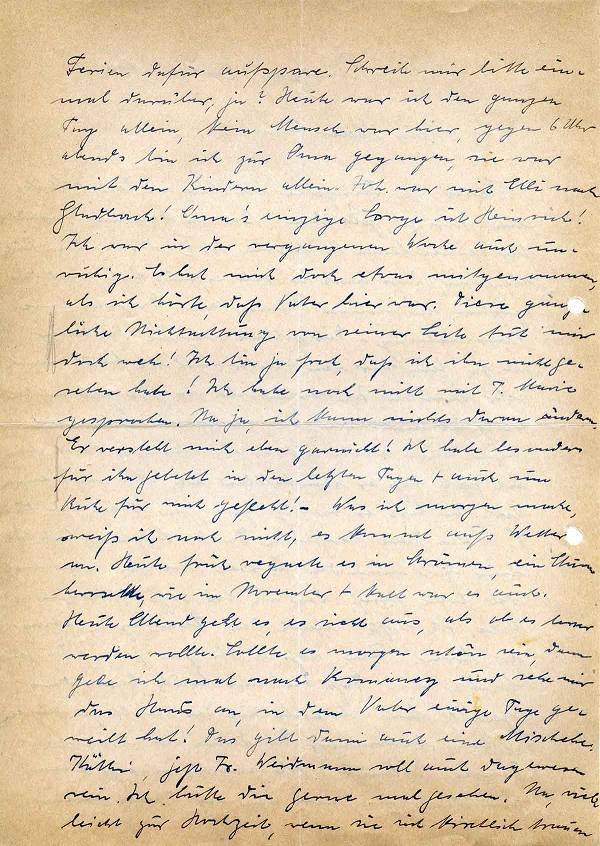 Ferien dafür aufspare. Schreib mir bitte ein-
mal darüber, ja? Heute war ich den ganzen
Tag allein, kein Mensch war hier, gegen 6 Uhr
abends bin ich zur Oma gegangen, sie war
mit den Kindern allein. Joh. war mit Elli nach
Gladbach! Oma's einzige Sorge ist Heinrich!
Ich war in der vergangenen Woche auch un-
ruhig. Es hat mich doch etwas mitgenommen,
als ich hörte, daß Vater hier war. Diese gänz-
liche Nichtachtung von seiner Seite tut mir
doch weh! Ich bin ja froh, daß ich ihn nicht ge-
sehen habe! Ich habe noch nicht mit T. Marie
gesprochen. Na ja, ich kann nichts daran ändern.
Er versteht mich eben garnicht! Ich habe besonders
für ihn gebetet in den letzten Tagen + auch um
Ruhe für mich gefleht! – Was ich morgen mache,
weiß ich noch nicht, es kommt aufs Wetter
an. Heute früh regnete es in Strömen, ein
wie im November + kalt war es auch.
Heute Abend geht es, es sieht aus, als ob es besser
werden wollte. Sollte es morgen schön sein, dann
gehe ich mal nach und sehe mir
das Haus an, in dem Vater einige Tage ge-
weilt hat! Das gibt dann auch eine Mischehe.
Käthi, jetzt Fr. Weidmann soll auch dagewesen
sein. Ich hätte die gerne mal gesehen. Na, viel-
leicht zur Hochzeit, wenn sie sich kirchlich trauen